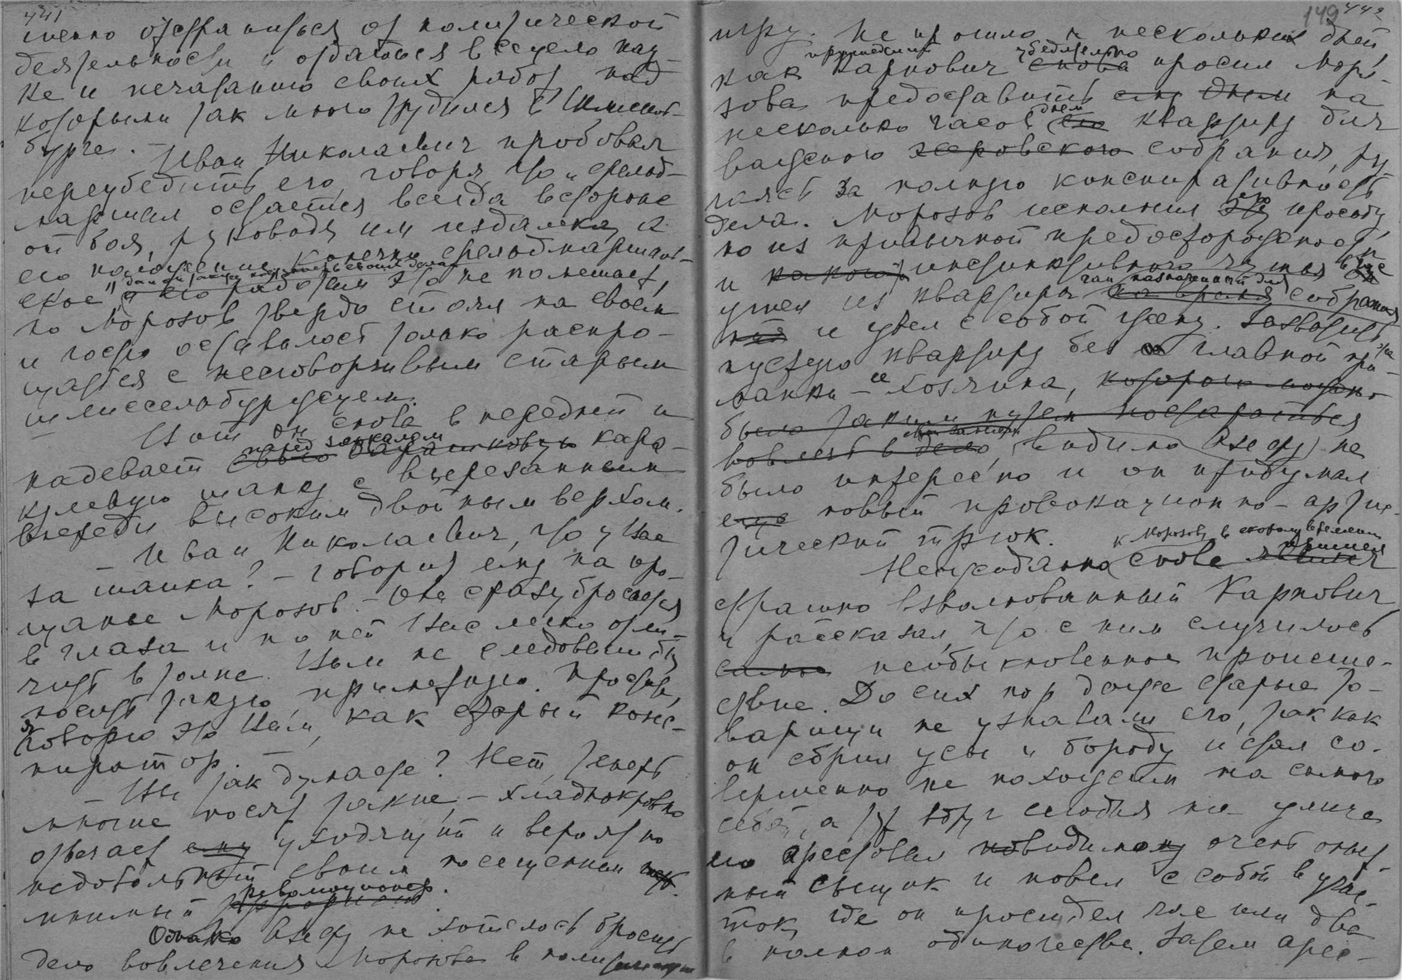 441
менно отстраниться от политической
деятельности и отдаться всецело нау-
ке и печатанию своих работ, над
которыми так много трудился в Шлиссель-
бурге. —
Иван Николаевич пробовал
переубедить его, говоря, что „фельд-
маршал остается всегда в стороне
от боя, руководя им издалека и
его положение, конечно, фельдмаршаль-
ское
то Морозов твердо стоял на своем
и гостю оставалось только распро-
щаться с несговорчивым старым
шлиссельбуржцем.
Вот он снова в передней и
надевает перед зеркалом кара-
кулевую шапку с вырезанным
впереди высоким двойным верхом.
— Иван Николаевич, что у Вас
за шапка? — говорил ему на про-
щанье Морозов. — Она сразу бросается
в глаза и по ней Вас легко отли-
чить в толпе. Вам не следовало бы
носить такую приметную. Простите,
я говорю это Вам, как старый конс-
пиратор. —
— Вы так думаете? Нет, теперь
многие носят такие, — хладнокровно
отвечает уходящий и вероятно
недовольный своим посещением
мнимый революционер.
Однако Азефу не хотелось бросить
дело вовлечения Морозова в политическую
149 442
игру. Не прошло и нескольких дней,
как пришедший Карпович убедительно просил Моро-
зова предоставить на
несколько часов днем квартиру для
важного собрания, ру-
чаясь за полную конспиративность
дела. Морозов исполнил его просьбу,
но из привычной предосторожности
и инстинктивного чутья
ушел из квартиры в час назначенный для собрания
и увел с собой жену. Захватить
пустую квартиру без главной при-
манки — ее хозяина,
видимо Азефу не
было интересно и он придумал
новый провокационно-арти-
стический трюк.
Неожиданно снова к Морозову в скором времени пришел
страшно взволнованный Карпович
и рассказал, что с ним случилось
необыкновенное происше-
ствие. До сих пор даже старые то-
варищи не узнавали его, так как
он сбрил усы и бороду и стал со-
вершенно не похожим на самого
себя, а тут вдруг сегодня на улице
его арестовал очень опыт-
ный сыщик и повел с собой в учас-
ток, где он просидел час или два
в полном одиночестве. Затем арес-